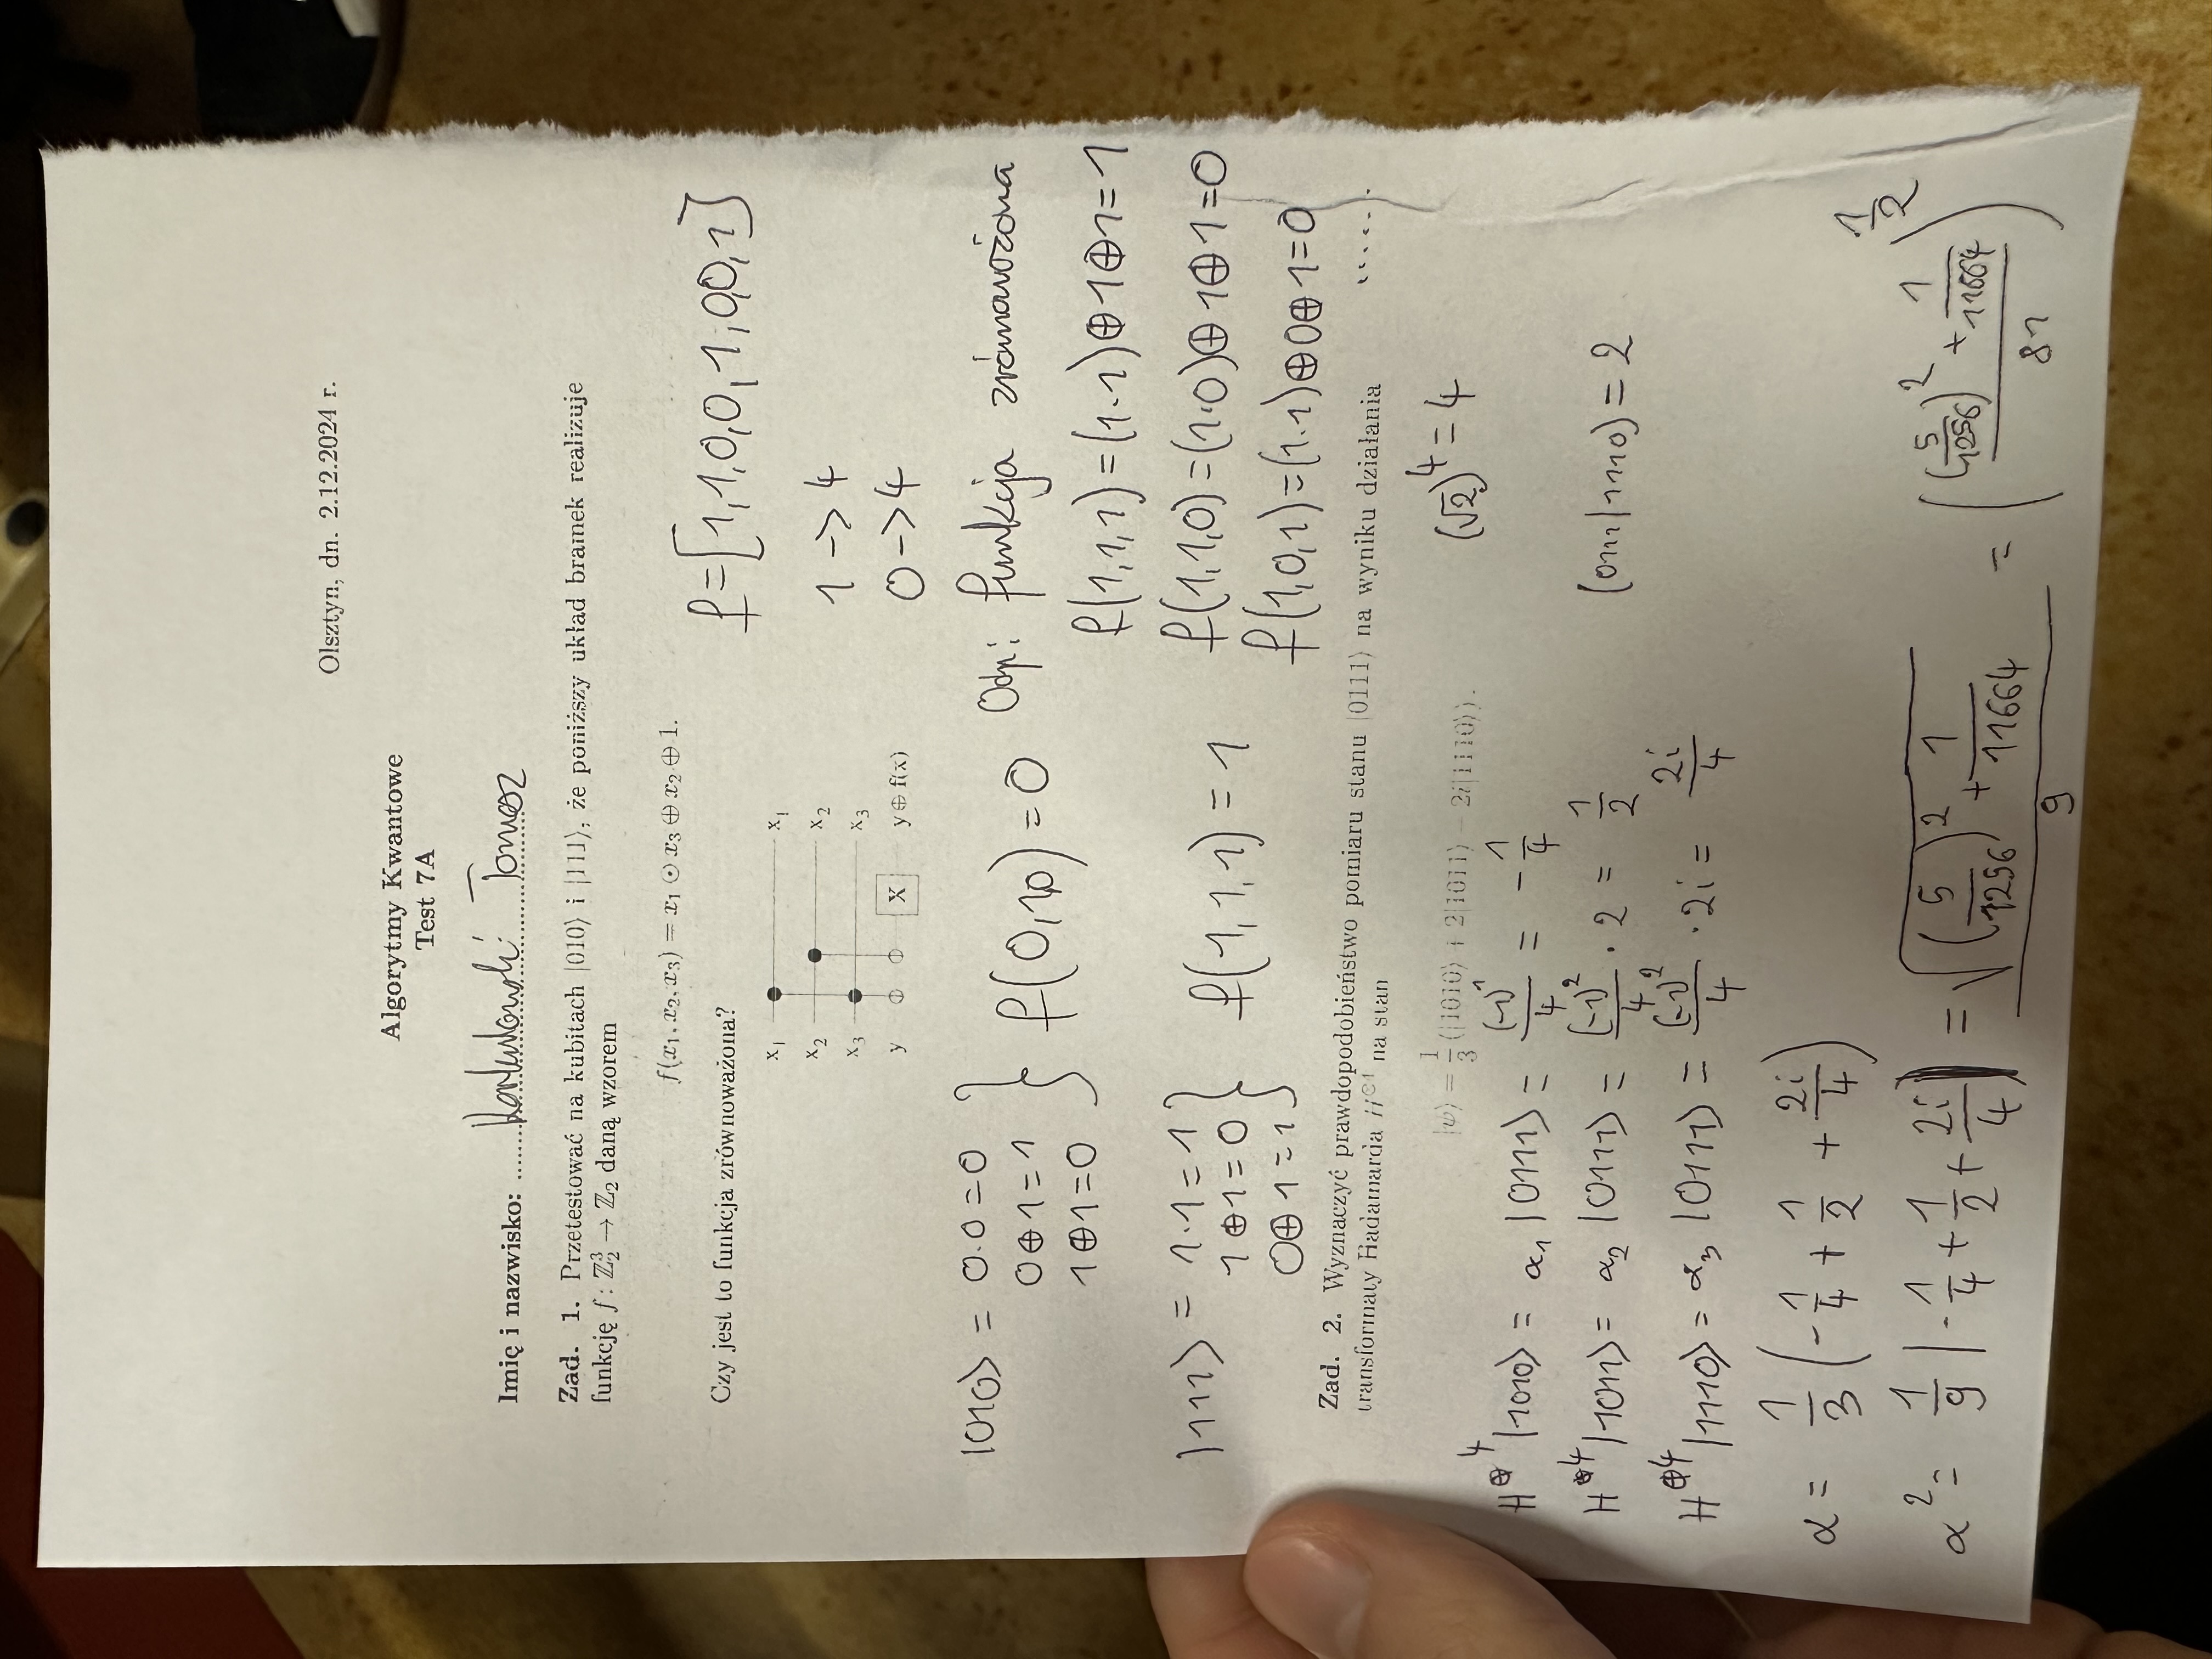 Olsztyn, dn. 2.12.2024 r.
Algorytmy Kwantowe
Test 7A
Imię i nazwisko: Tomasz
Zad. 1. Przetestować na kubitach |010⟩ i |111⟩, że poniższy układ bramek realizuje
funkcję f: ℤ₂³ → ℤ₂ daną wzorem
f(x₁, x₂, x₃) = x₁ ⊙ x₃ ⊕ x₂ ⊕ 1.
Czy jest to funkcja zrównoważona?
f=[1,1,0,0,1,0,0,1]
x₁ x₁
x₂ x₂
x₃ x₃
y X y⊕f(x)
1 -> 4
0 -> 4
Odp: funkcja zrównoważona
|010⟩ = 0·0=0
0⊕1=1
1⊕1=0
f(0,1,0)=0
|111⟩ = 1·1=1
1⊕1=0
0⊕1=1
f(1,1,1)=1
f(1,1,1)=(1·1)⊕1⊕1=1
f(1,1,0)=(1·0)⊕1⊕1=0
f(1,0,1)=(1·1)⊕0⊕1=0
......
Zad. 2. Wyznaczyć prawdopodobieństwo pomiaru stanu |0111⟩ na wyniku działania
transformaty Hadamarda H^⊗4 na stan
|ψ⟩ = 1/3 (|1010⟩ + 2|1011⟩ − 2i|1110⟩).
(√2)⁴=4
H^⊕4 |1010⟩ = α₁ |0111⟩ = (-1)¹/4 = -1/4
H^⊕4 |1011⟩ = α₂ |0111⟩ = (-1)²/4 · 2 = 1/2
(0111|1110)=2
H^⊕4 |1110⟩ = α₃ |0111⟩ = (-1)²/4 · 2i = 2i/4
α = 1/3 (-1/4 + 1/2 + 2i/4)
α² = 1/9 |-1/4 + 1/2 + 2i/4| = √((5/1296)² + 1/11664)/9 = (((5/1296)² + 1/11664)/81)^1/2